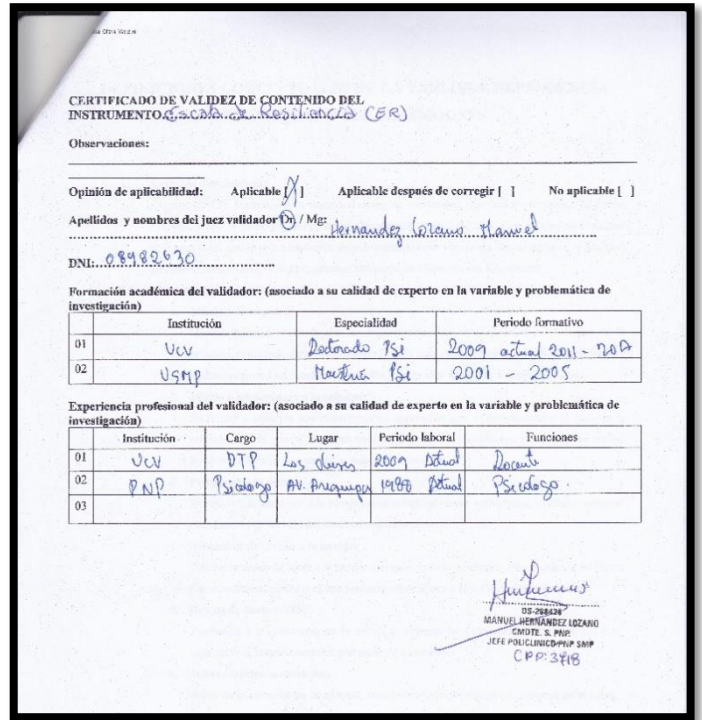 CERTIFICADO DE VALIDEZ DE CONTENIDO DEL
INSTRUMENTO Escala de Resiliencia (ER)
Observaciones:
Opinión de aplicabilidad: Aplicable [X] Aplicable después de corregir [ ] No aplicable [ ]
Apellidos y nombres del juez validador Dr. / Mg:
Hernandez Lozano Manuel
DNI: 08982630
Formación académica del validador: (asociado a su calidad de experto en la variable y problemática de
investigación)
Institución Especialidad Periodo formativo
01 UCV Doctorado Psi 2009 actual 2011 -
02 USMP Maestria Psi 2001 - 2005
Experiencia profesional del validador: (asociado a su calidad de experto en la variable y problemática de
investigación)
Institución Cargo Lugar Periodo laboral Funciones
01 UCV DTP Los Olivos 2009 Actual Docente
02 PNP Psicologo AV. Arequipa 1988 Actual Psicologo.
03
MANUEL HERNANDEZ LOZANO
CMDTE. S. PNP.
JEFE POLICLINICO PNP SMP
CPP: 3718